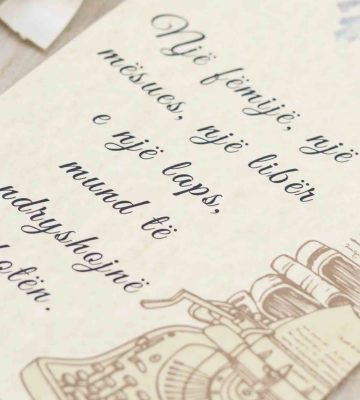 Një fëmijë, një
mësues, një libër
e një laps,
mund të
ndryshojnë
botën.